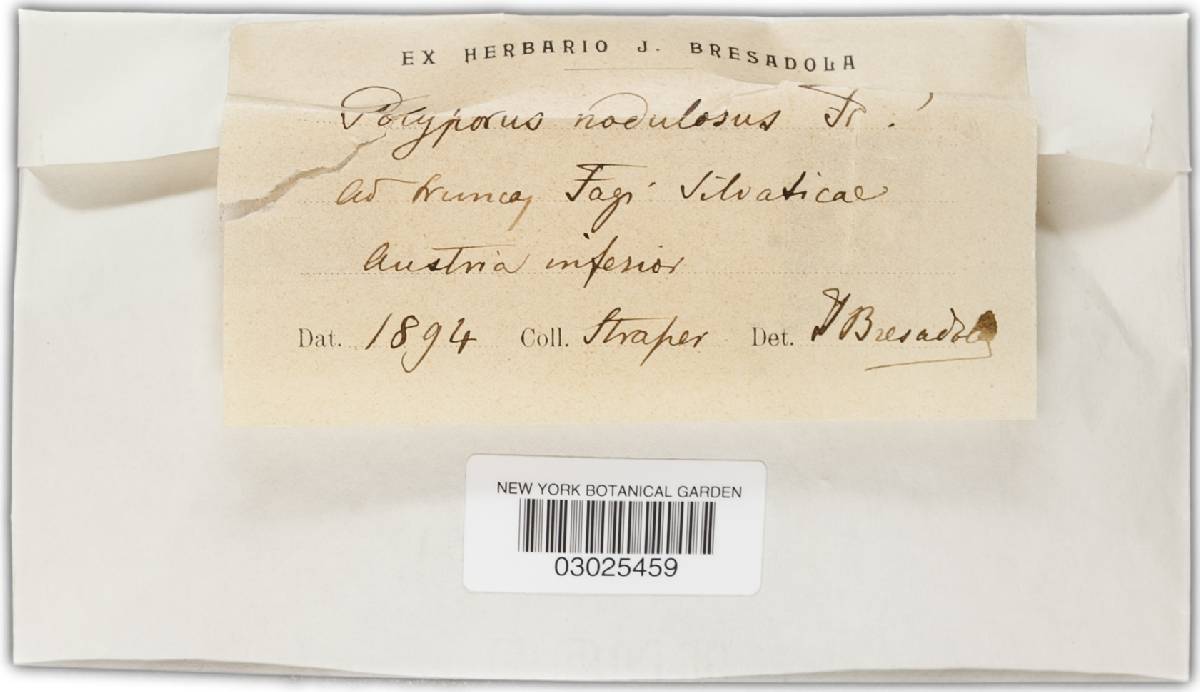 EX HERBARIO J. BRESADOLA
Polyporus nodulosus Fr.!
ad truncos Fagi Silvaticae
Austria inferior
Dat. 1894 Coll. Straper Det. J Bresadola
NEW YORK BOTANICAL GARDEN
03025459